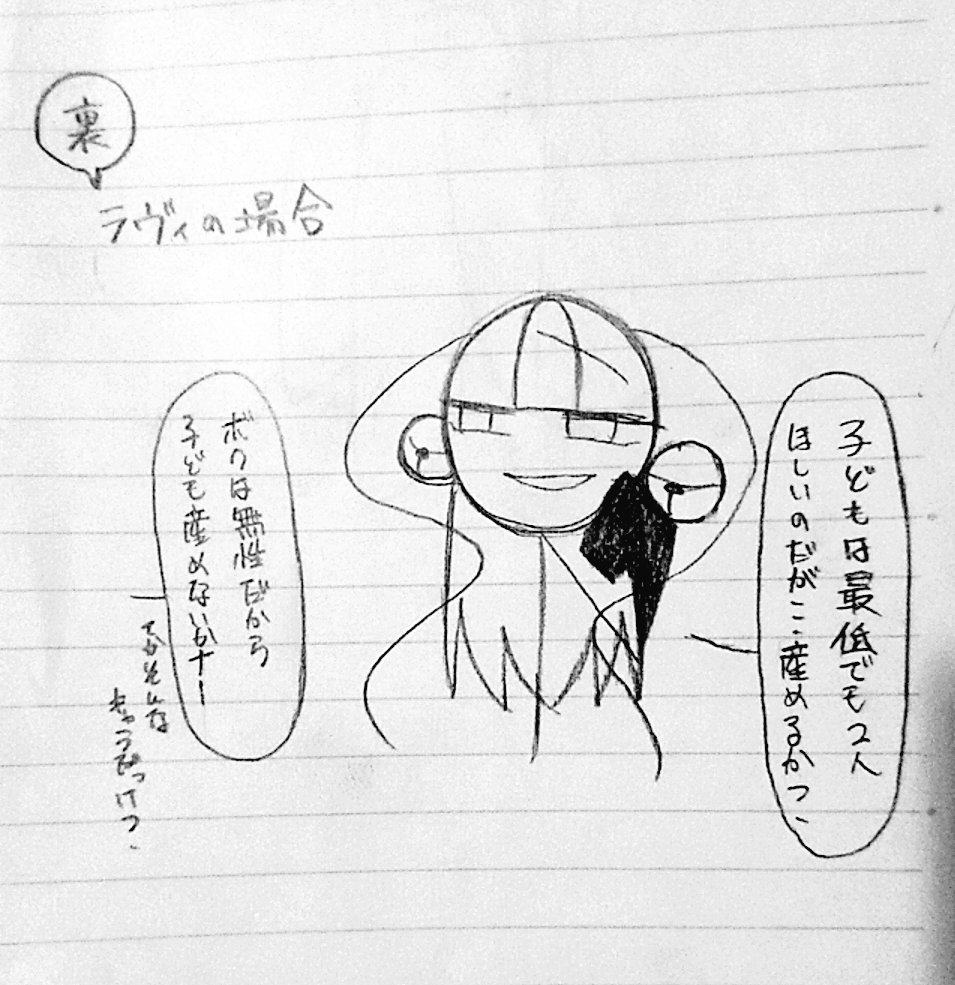 裏
ラヴィの場合
子どもは最低でも2人
ほしいのだがここ産めるかつ、
ボクは無性だから
子ども産めないかナー
てかそんな
きゃらだっけつ、